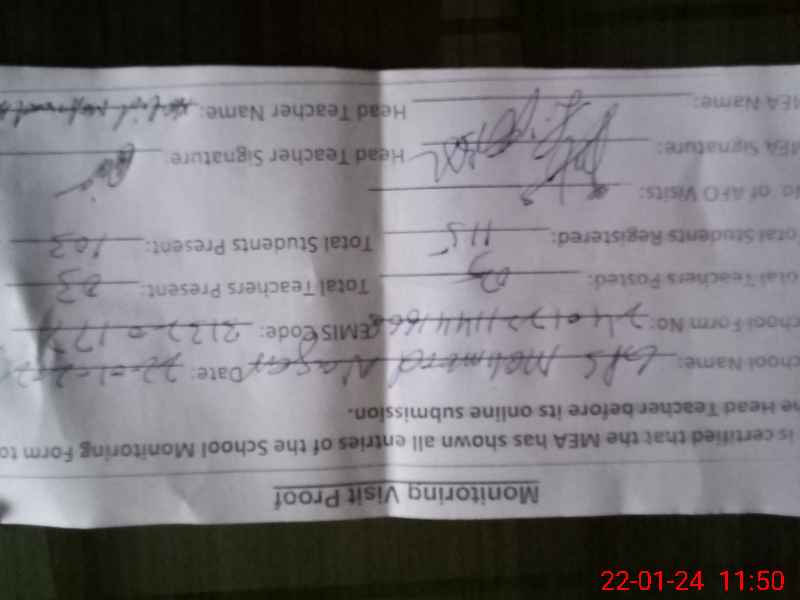 Monitoring Visit Proof
is certified that the MEA has shown all entries of the School Monitoring Form to
he Head Teacher before its online submission.
chool Name: GPS Mohmmad Nagar Date: 22-01-2
chool Form No: EMIS Code:
otal Teachers Posted: 03 Total Teachers Present: 03
otal Students Registered: 115 Total Students Present: 103
o. of AFO Visits:
MEA Signature: Head Teacher Signature:
MEA Name: Head Teacher Name:
22-01-24 11:50